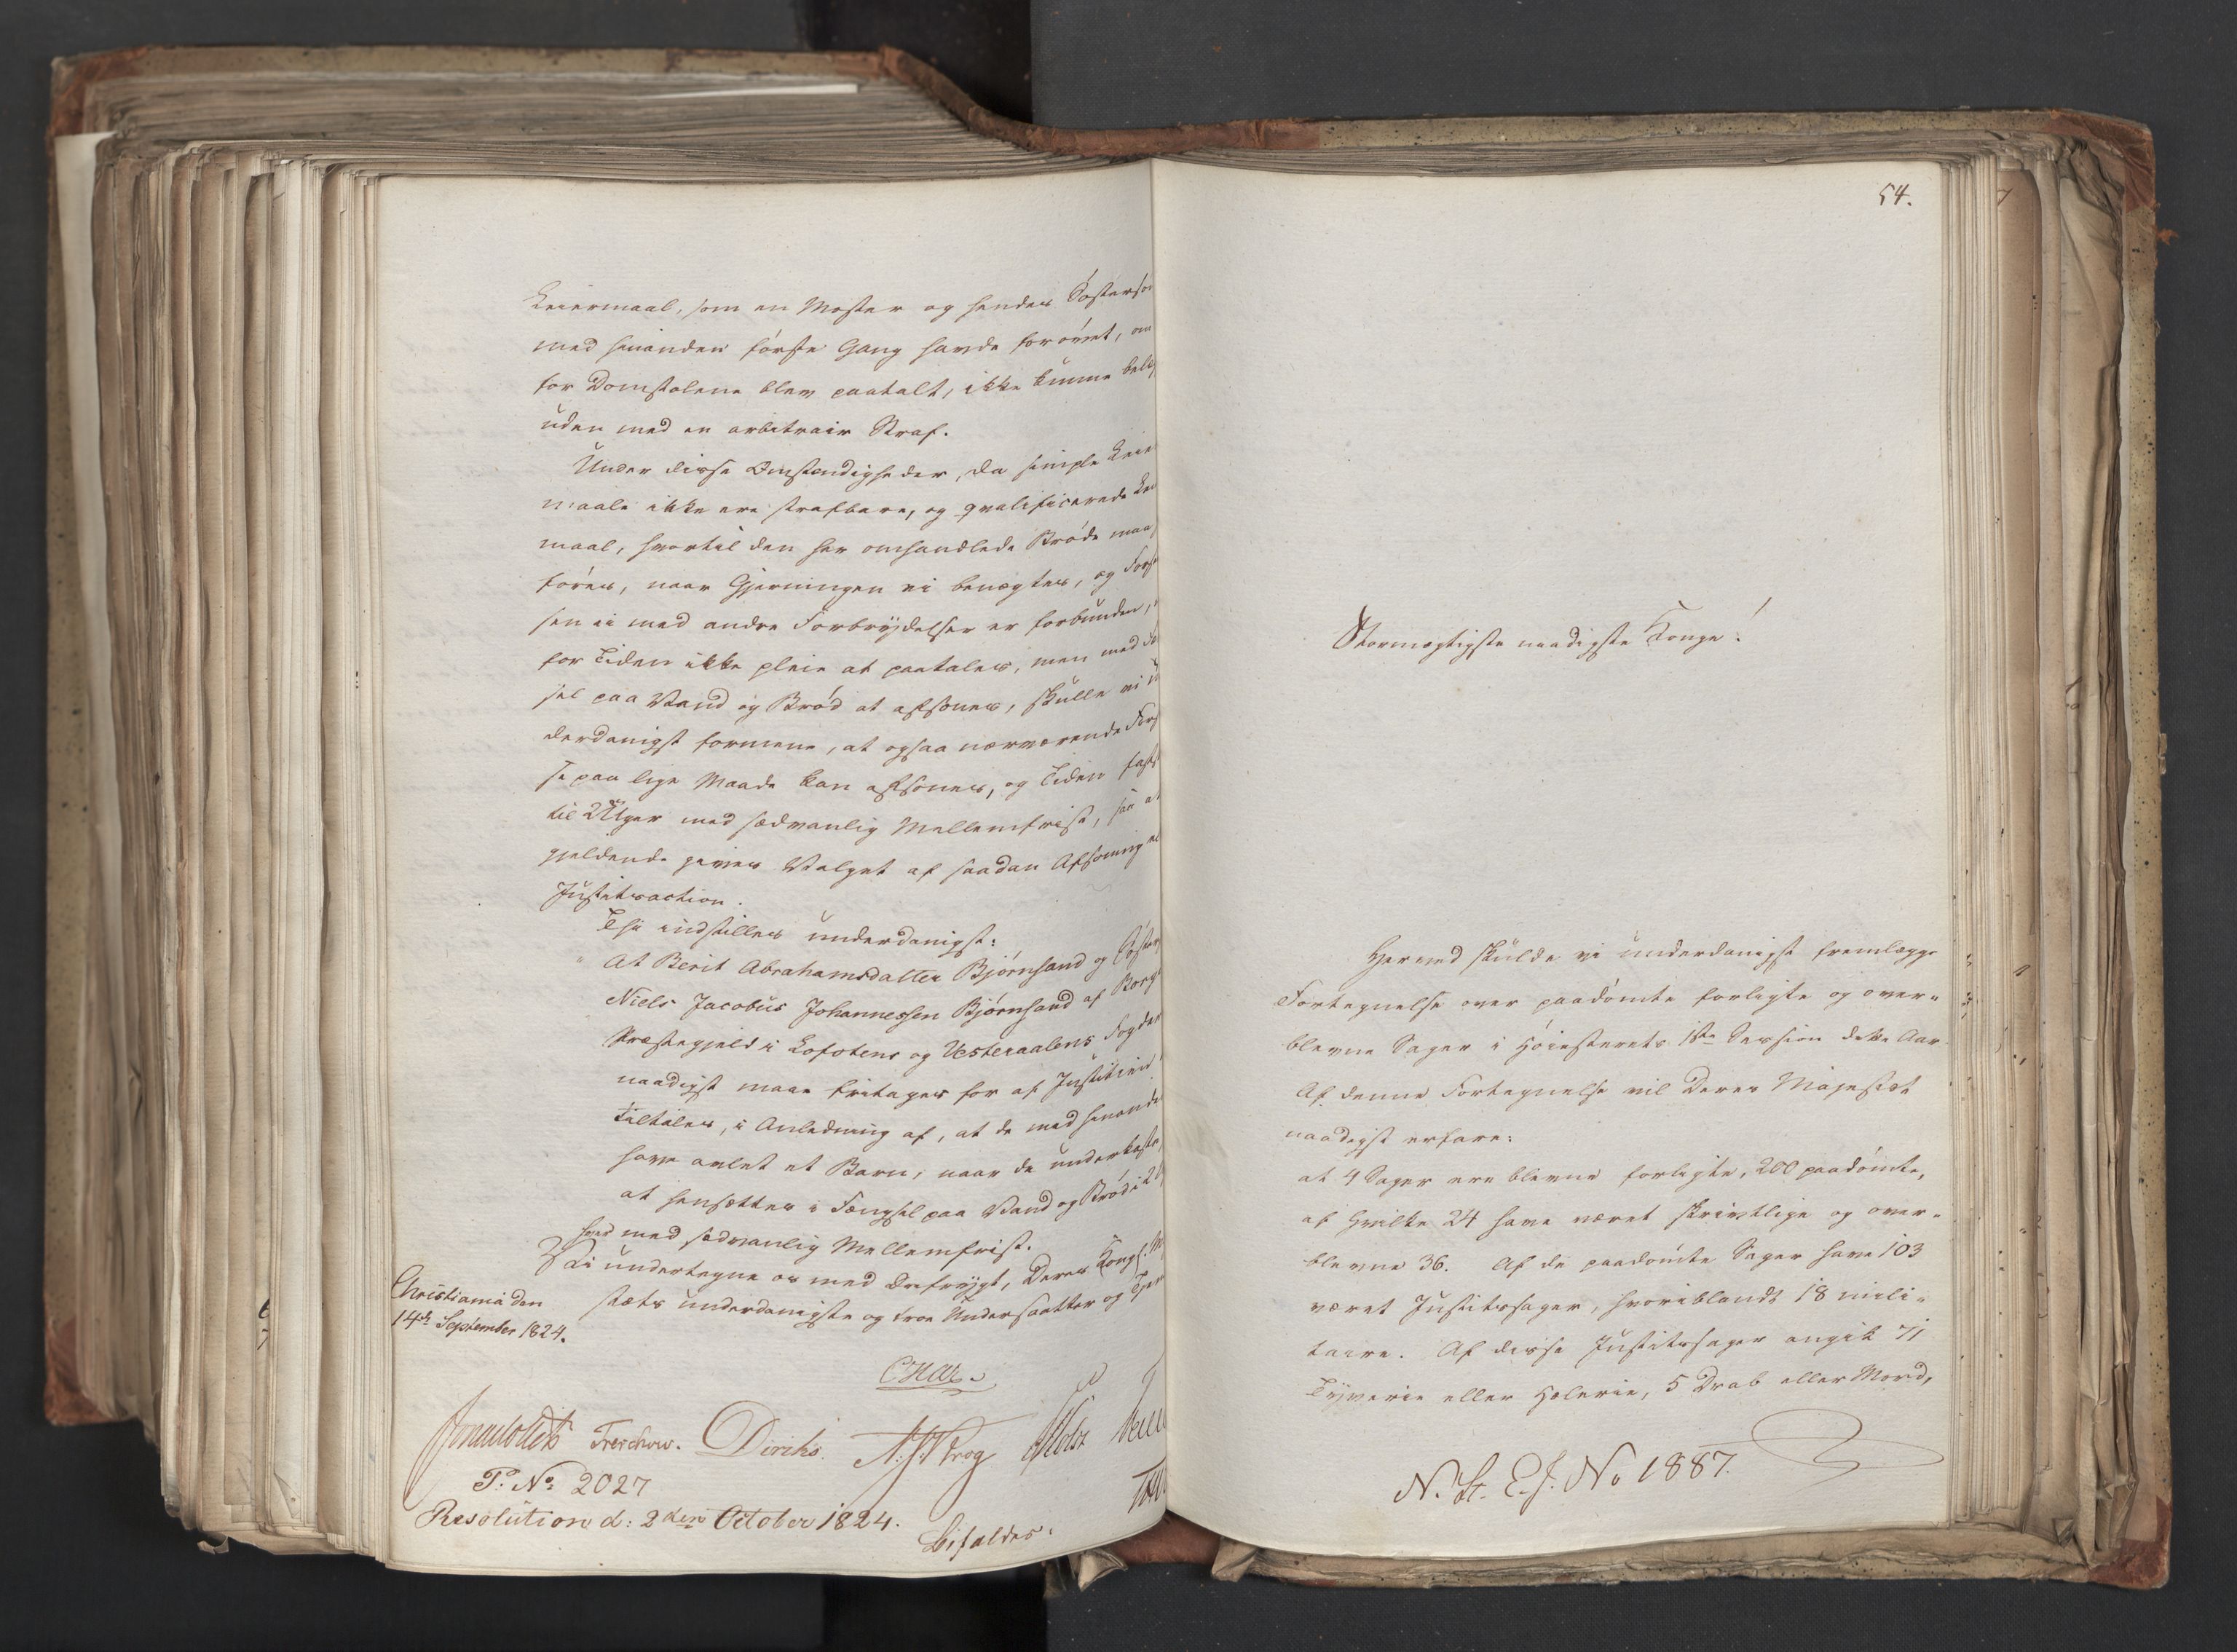 Leiermaal, som en Moster og hendes Søsterso
med hinanden første Gang havde forøvet, om
for Domstolene blev paatalt, ikke kunne bel
uden med en arbitrair Straf.
Under disse Omstændigheder, da simple Leier
maale ikke ere strafbare, og qvalificerede Lei
maal, hvortil den her omhandlede Brøde maa
føres, naar Gjerningen ei benægtes, og Forse
sen ei med andre Forbrydelser er forbunden,
for Tiden ikke pleie at paatales, men med Fæ
sel paa Vand og Brød at afsones, skulle vi u
derdanigst formene, at ogsaa nærværende Forse
se paa lige Maade kan afsones, og Tiden fast
til 2de Uger med sædvanlig Mellemfrist, saa at
gjeldende gives Valget af saadan Afsoning el
Justitsaction.
Thi indstilles underdanigst:
At Berit Abrahamsdatter Bjørnsand og Søster
Niels Jacobus Johannessen Bjørnsand af Borge
Præstegjeld i Lofotens og Vesteraalens Fogder
naadigst maae fritages for af Justitien
tiltales, i Anledning af, at de med hinanden
have avlet et Barn, naar de underkaste
at hensættes i Fængsel paa Vand og Brød i 2 U
hver med sædvanlig Mellemfrist.
Vi undertegne os med Ærefrygt, Deres Kongl. M
stæts underdanigste og troe Undersaatter og Tjen
Christiania den
14de September 1824.
Treschow. Diriks. Krog Holst
P. No 2027
Resolution d: 2den October 1824.
Bifaldes.
54.
Stormægtigste naadigste Konge!
Hermed skulde vi underdanigst fremlægge
Fortegnelse over paadømte forligte og over-
blevne Sager i Høiesterets 1ste Session dette Aar.
Af denne Fortegnelse vil Deres Majestæt
naadigst erfare:
at 4 Sager ere blevne forligte, 200 paadømte,
af hvilke 24 have været skrivtlige og over-
blevne 36. Af de paadømte Sager have 103
været Justitssager, hvoriblandt 18 mili-
taire. Af disse Justitssager angik 71
Tyverie eller Hælerie, 5 Drab eller Mord,
N. St. E. J. No 1887.